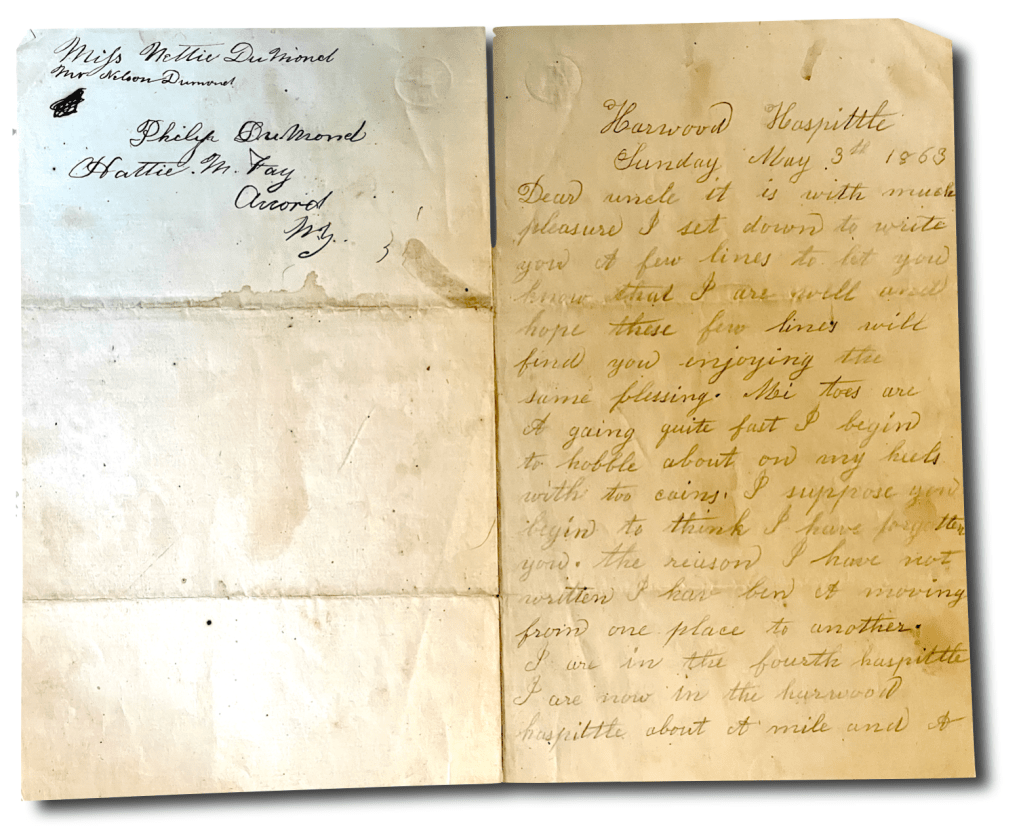 Miss Nettie DuMond
Mr Nelson Dumond
Philip DuMond
Hattie. M. Fay
Accord
N.Y.
Harwood Haspittle
Sunday May 3th 1863
Dear uncle it is with much
pleasure I set down to write
you A few lines to let you
know that I are well and
hope these few lines will
find you enjoying the
same blessing. Mi toes are
A gaing quite fast I begin
to hobble about on my heels
with too cains. I suppose you
begin to think I have forgotten
you. the reason I have not
written I hav ben A moving
from one place to another.
I are in the fourth haspittle
I are now in the harwood
haspittle about A mile and A